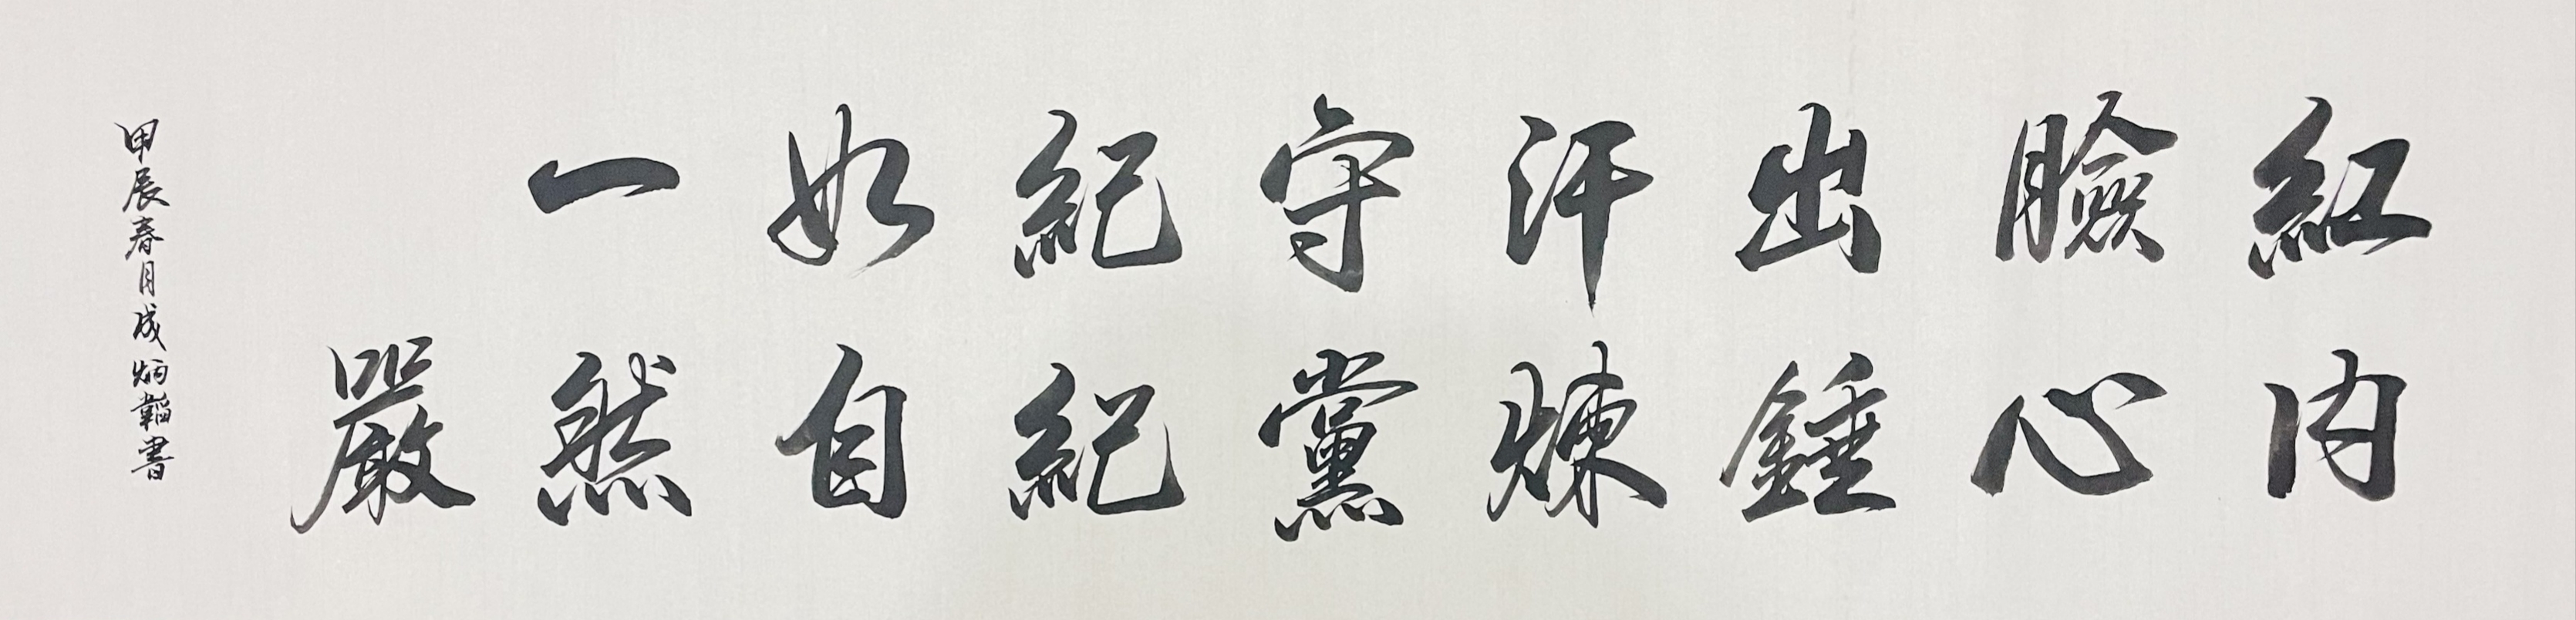 紅臉出汗守紀如一
内心錘煉黨紀自然嚴
甲辰春月成炳韜書